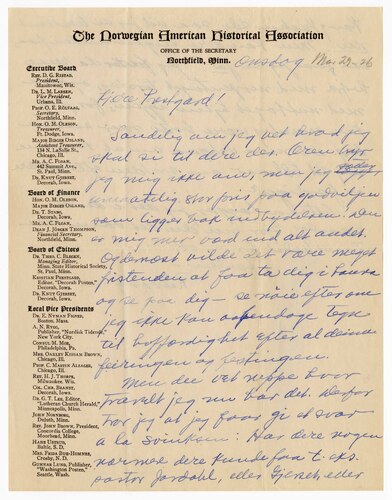 The Norwegian American Historical Association
OFFICE OF THE SECRETARY
Northfield, Minn.
Onsdag Mar. 27-26
Executive Board
Rev. D. G. Ristad,
President,
Manitowoc, Wis.
Dr. L. M. Larson,
Vice President,
Urbana, Ill.
Prof. O. E. Rölvaag,
Secretary,
Northfield, Minn.
Hon. O. M. Oleson,
Treasurer,
Ft. Dodge, Iowa.
Major Birger Osland,
Assistant Treasurer,
134 N. LaSalle St.,
Chicago, Ill.
Mr. A. C. Floan,
442 Summit Ave.,
St. Paul, Minn.
Dr. Knut Gjerset,
Decorah, Iowa.
Board of Finance
Hon. O. M. Oleson,
Major Birger Osland,
Dr. T. Stabo,
Decorah, Iowa.
Mr. A. C. Floan,
Dean J. Jörgen Thompson,
Financial Secretary,
Northfield, Minn.
Board of Editors
Dr. Theo. C. Blegen,
Managing Editor,
Minn. State Historical Society,
St. Paul, Minn.
Kristian Prestgard,
Editor, "Decorah Posten,"
Decorah, Iowa.
Dr. Knut Gjerset,
Decorah, Iowa.
Local Vice Presidents
Dr. E. Nyman Figved,
Boston, Mass.
A. N. Rygg,
Publisher "Nordisk Tidende"
New York City.
Mrs. Oakley Kissam Brown,
Chicago, Ill.
Chicago, Ill.
Rev. H. J. Thorpe,
Milwaukee, Wis.
Decorah, Iowa.
Dr. G. T. Lee, Editor
"Lutheran Church Herald,"
Minneapolis, Minn.
Duluth, Minn.
Rev. John Brown, President,
Concordia College,
Moorhead, Minn.
Hans Ustrud,
Baltic, S. D.
Crosby, N. D.
Gunnar Lund, Publisher,
"Washington Posten,"
Seattle, Wash.
Kjære Prestgard!
Sandelig om jeg vet hvad jeg
skal si til dere der. Æren bryr
jeg mig ikke om, men jeg
umaatelig stor pris paa godviljen
som ligger bak indbydelsen. Den
er mig mer værd end alt andet.
Og dernæst vilde det være meget
fristende at faa ta dig i haand
og se paa dig
jeg ikke kan opdage tegn
til hoffærdighet efter al denne
feiringen og festingen.
Men du vet neppe hvor
travelt jeg nu har det. Derfor
tør jeg at jeg faar gi et svar
a la Har dere nogen
nærmere dere kunde faa t. eks.
pastor Jordahl, eller Gjerset, eller